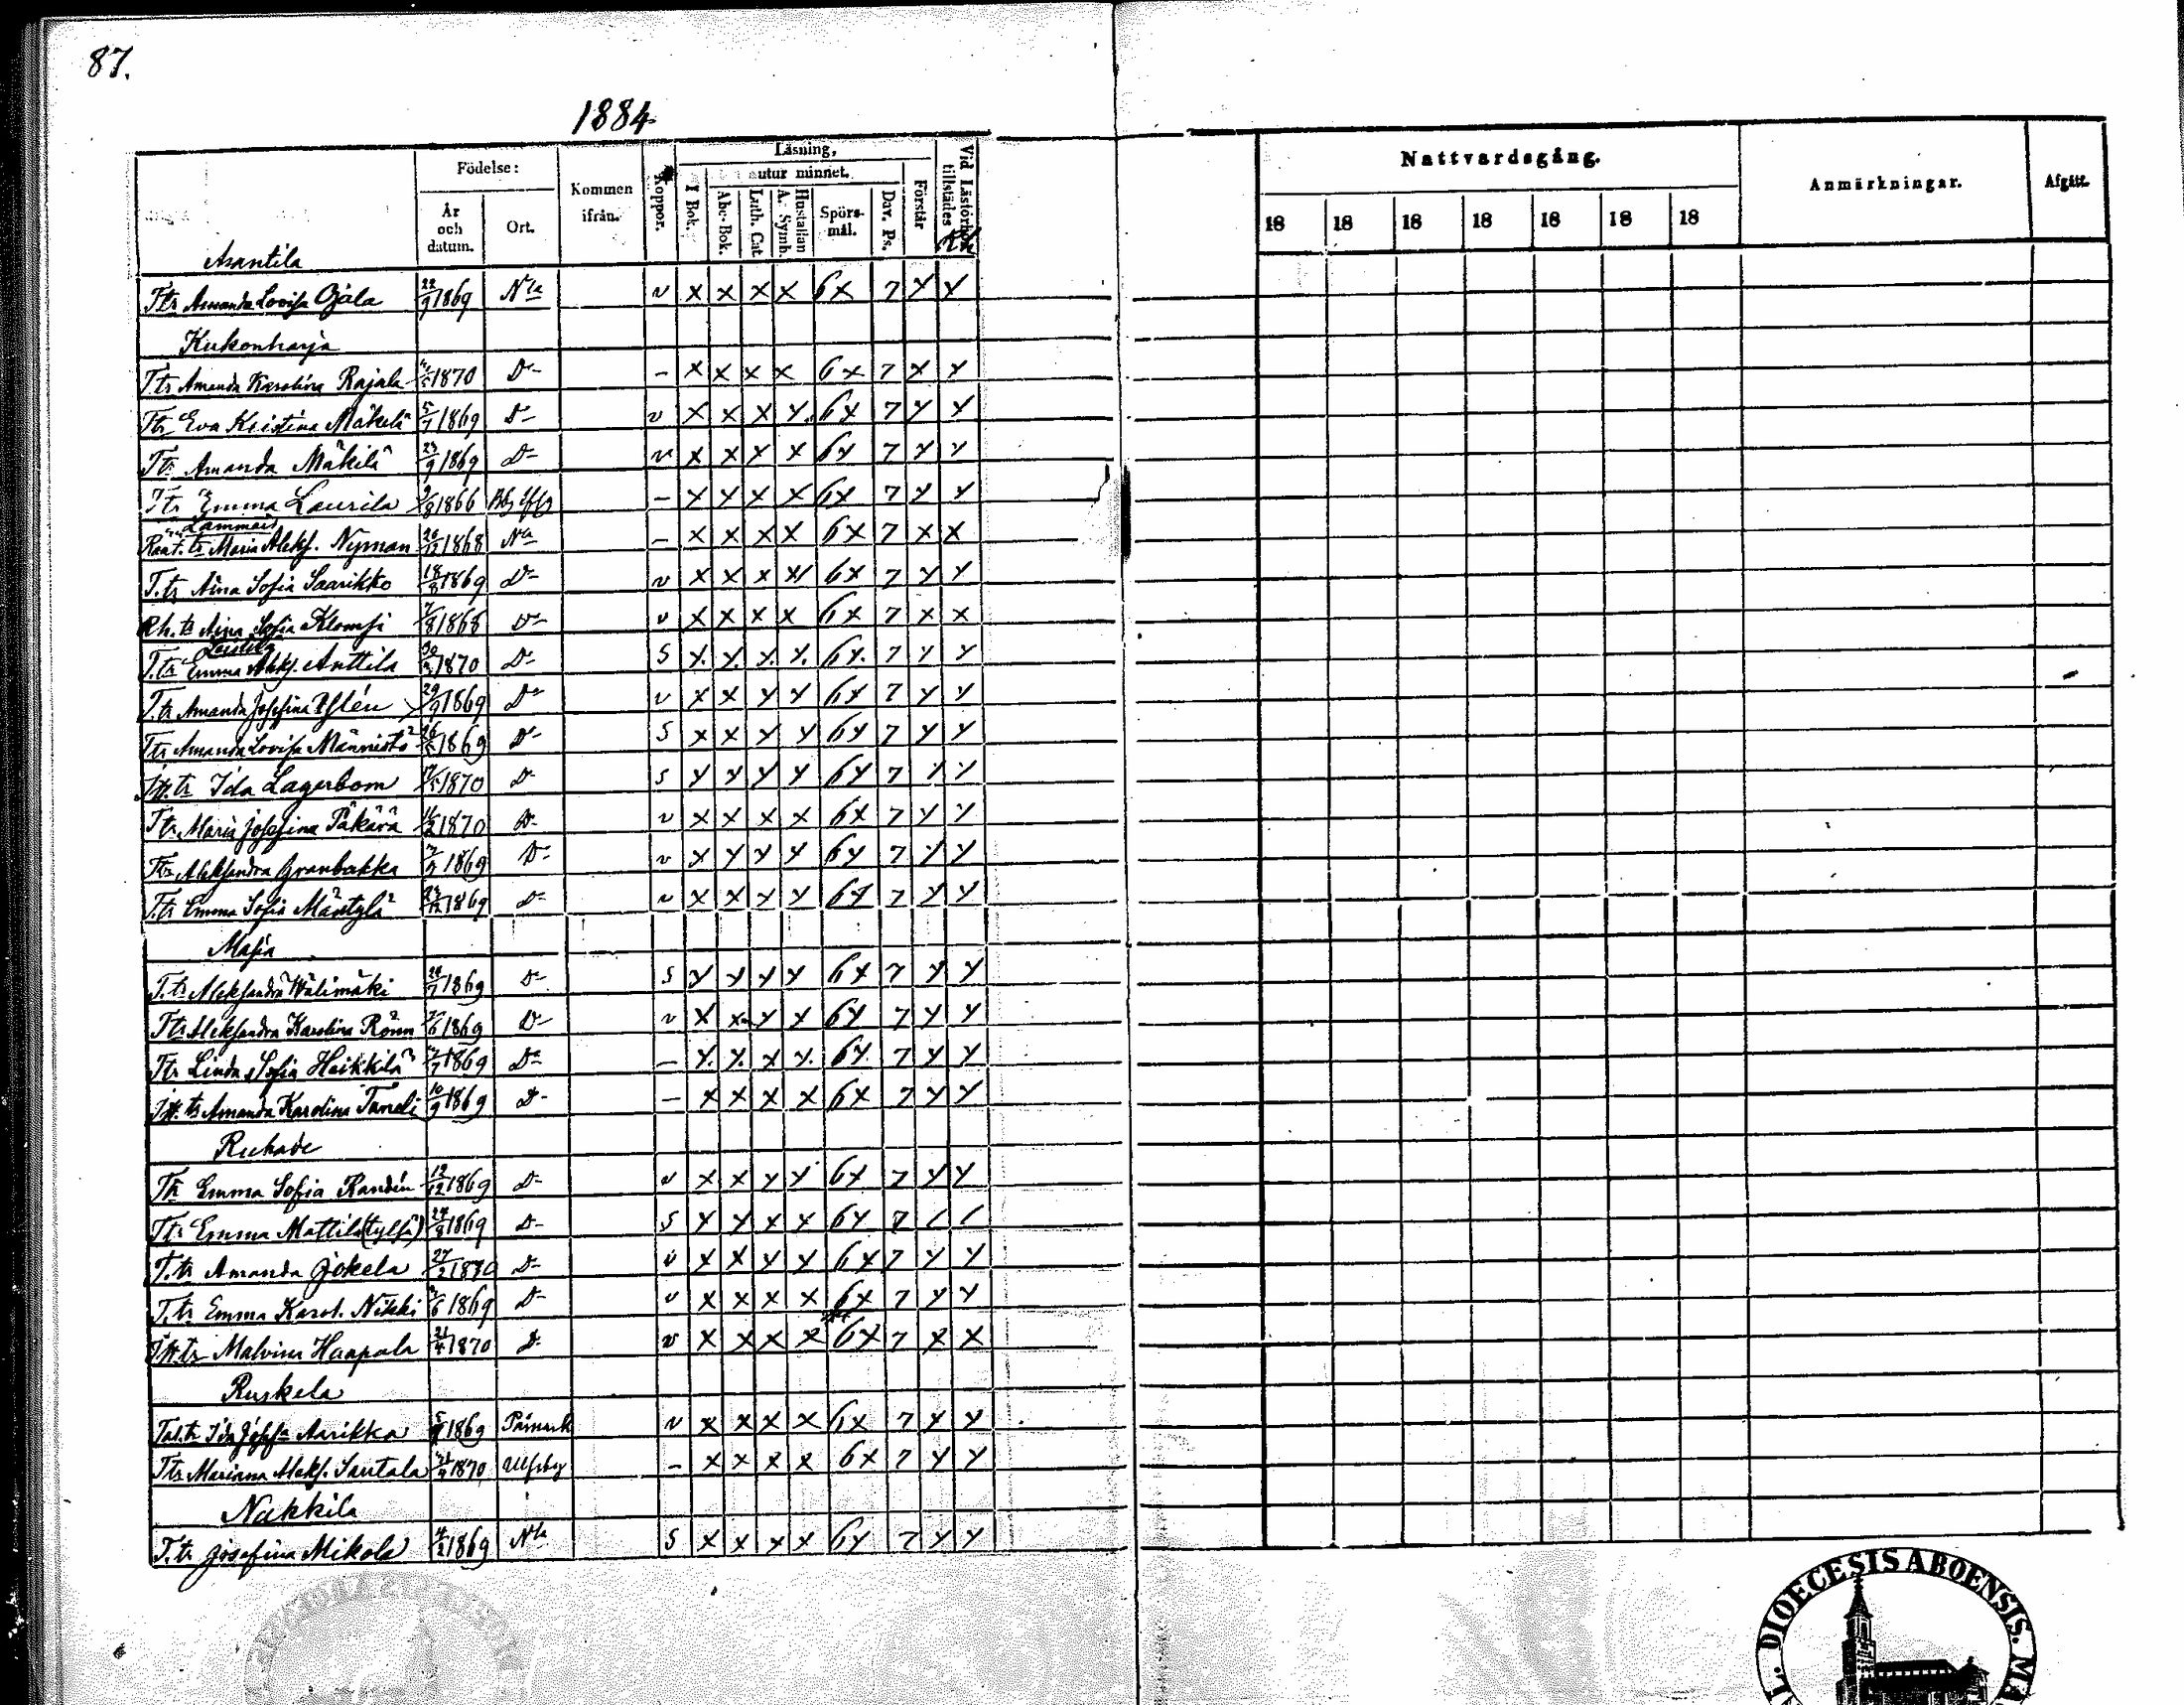 87.
1884
Födelse:
År och datum.
Ort.
Kommen ifrån.
Koppor.
Läsning,
I Bok.
utur minnet.
Abc-Bok.
Luth. Cat
Hustaflan A. Symb.
Spörs-mål.
Dav. Ps.
Förstår
Vid Läsförhör tillstädes
Nattvardsgång.
18 18 18 18 18 18 18
Anmärkningar.
Afgått.
Anantila
T.tr Amanda Lovisa Ojala 22/9 1869 Nla v x x x x 6x 7 x x
Kukonharja
T.tr Amanda Karolina Rajala 1870 Do - x x x x 6x 7 x x
T.tr Eva Kristina Mäkelä 5/7 1869 Do v x x x x 6x 7 x x
T.tr Amanda Mäkilä 23/9 1869 Do v x x x x 6x 7 x x
T.tr Emma Laurila 1866 - x x x x 6x 7 x x
Lammais
Maria Aleks. Nyman 20/12 1868 Nla - x x x x 6x 7 x x
T.tr Aina Sofia Saarikko 18/8 1869 Do v x x x x 6x 7 x x
Aina Sofia Klomsi 7/8 1868 Do v x x x x 6x 7 x x
Leistilä
T.tr Emma Aleks. Anttila 1870 Do s x x x x 6x 7 x x
T.tr Amanda Josefina Yflén 29/9 1869 Do v x x x x 6x 7 x x
T.tr Amanda Lovisa Männistö 1869 Do s x x x x 6x 7 x x
Ida Lagerbom 1870 Do s x x x x 6x 7 x x
T.tr Maria Josefina Päkärä 1870 Do v x x x x 6x 7 x x
T.tr Aleksandra Granbakka 1869 Do v x x x x 6x 7 x x
T.tr Emma Sofia Mäntylä 1869 Do v x x x x 6x 7 x x
Masia
T.tr Aleksandra Wälimäki 1869 Do s x x x x 6x 7 x x
T.tr Aleksandra Karolina Rönn 1869 Do v x x x x 6x 7 x x
T.tr Linda Sofia Heikkilä 1869 Do - x x x x 6x 7 x x
Amanda Karolina Taneli 10/9 1869 Do - x x x x 6x 7 x x
Ruhade
Emma Sofia Randén 19/12 1869 Do v x x x x 6x 7 x x
T.tr Emma Mattila (tylsä) 24/8 1869 Do s x x x x 6x 7
T.tr Amanda Jokela 27/2 1870 Do v x x x x 6x 7 x x
T.tr Emma Karol. Nikki 1869 Do v x x x x 6x 7 x x
Malvina Haapala 21/4 1870 Do v x x x x 6x 7 x x
Ruskela
Ida Josefa Aarikka 1869 Påmark v x x x x 6x 7 x x
T.tr Mariana Aleks. Santala 1870 Ulfsby - x x x x 6x 7 x x
Nakkila
T.tr Josefina Mikola 1869 Nla s x x x x 6x 7 x x
DIOECESIS ABOENSIS.